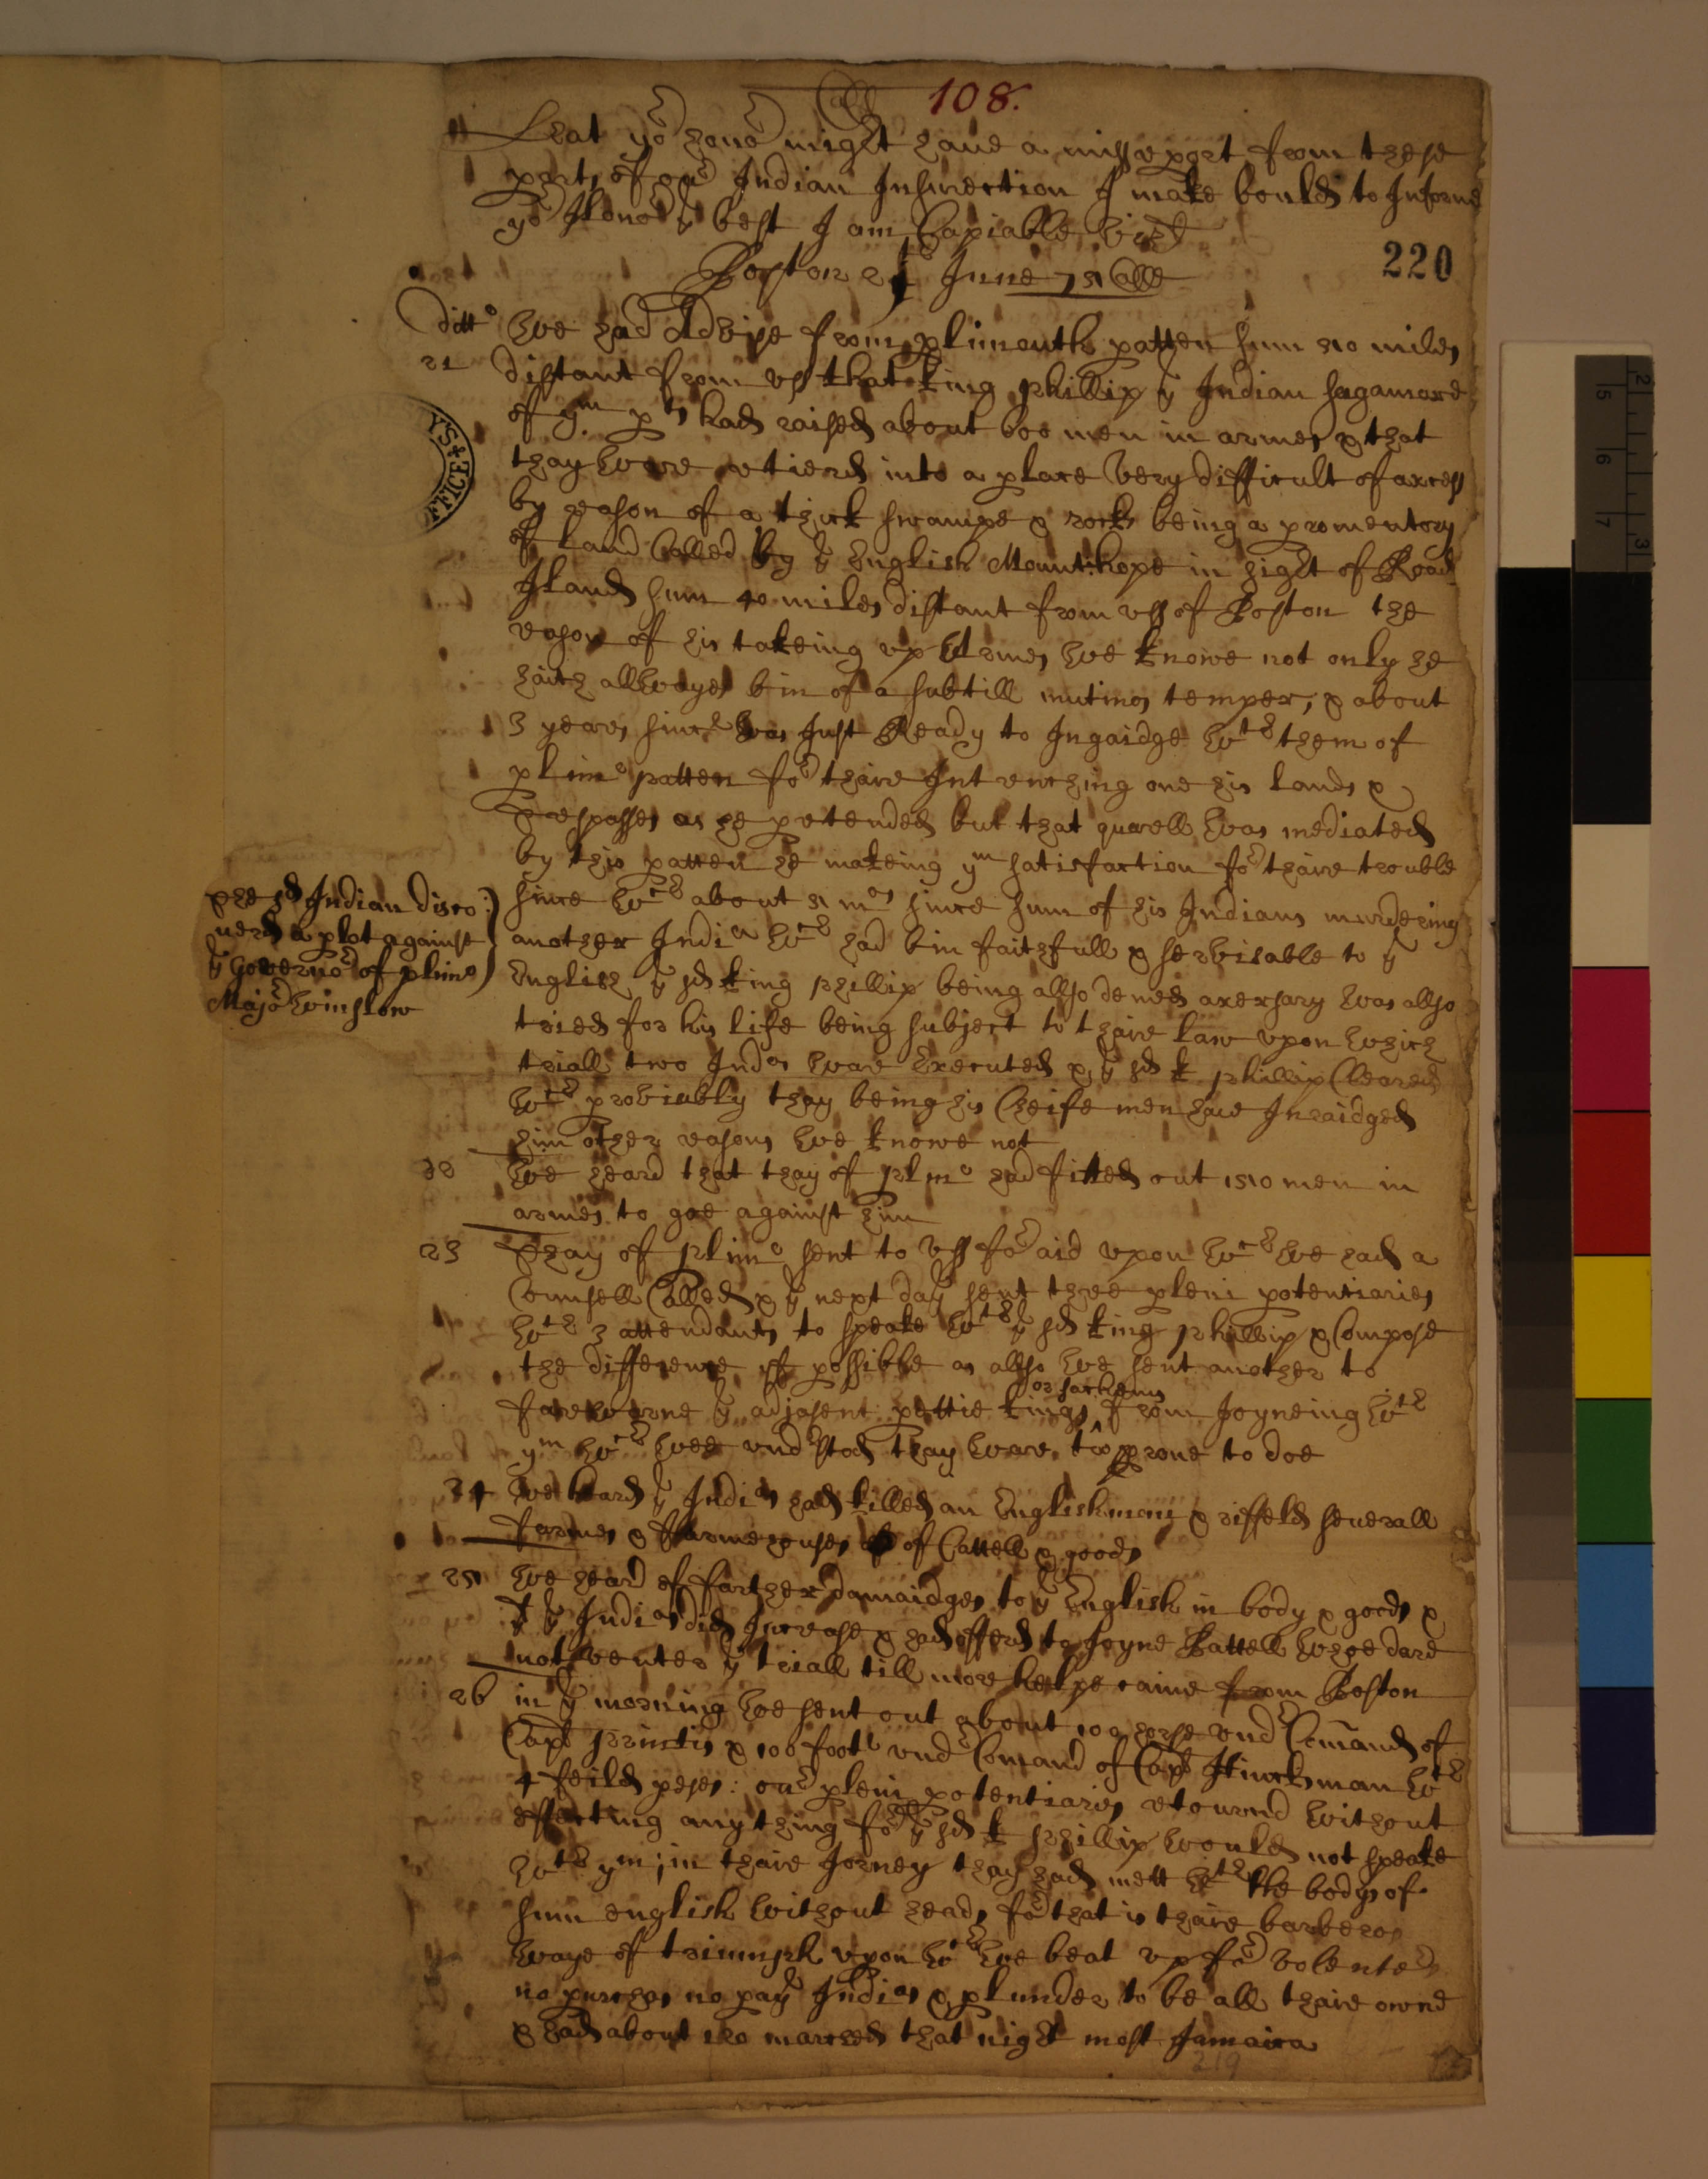 108.
Least yor honor might have a missreport from these
parts of our Indian Insurection I make bould to Informe
yor Honor ye best I am Capiable vizt
220
Boston 21th June 75
ditto We had Advise from plimouth patten sum 50 miles
21 distant from vs that king phillip ye Indian sagamore
of ym pts had raised about 600 men in armes & that
thay ware retierd into a place very difficult of access
by reason of a thick swampe & rocks being a promentory
of land Called by ye English Mount:hope in sight of Road
Iland sum 40 miles distant from vss of Boston the
reason of his takeing vp Armes we knowe not only he
haith allwayes bin of a subtill mutinos temper, & about
3 yeares since was Just Ready to Ingaidge wth them of
plimo patten for thaire Intrenching one his lands &
trespasses as he pretended but that quarell was mediated
by this patten he makeing ym satisfaction for thaire trouble
since wch about 5 mos since sum of his Indians murdering
another Indin wch had bin faithfull & servisable to ye
English ye sd king phillip being allso demed axersary was allso
tried for his life being subject to thaire law vpon which
triall two Indns ware Executed & ye sd k phillip Cleared
wch proviably thay being his Cheife men have Inraidged
him other reasons we knowe not
& the sd Indian disco:
uerd a plot against
ye Governor of plimo
Major Winslow
We heard that thay of plmo had fitted out 150 men in
armes to goe against him
23 Thay of plimo sent to vss for aid vpon wch we had a
Counsell Called & ye next day sent three pleni potentiaries
wth 3 attendants to speake wth ye sd king phillip & Compose
the difference if possible as allso we sent another to
or sachems
farewarne ye adjasent pettie kings from Joyneing wth
ym wch wee vndrstod thay ware tow prone to doe
24 we heard ye Indins had killed an Englishman & riffeld seuerall
farmes & ffarmehouses of Cattell & goods
25 we heard of farther damaidges to ye English in body & goods &
yt ye Indins did Increase & had offerd to Joyne Battell whoe dare
not venter ye triall till more helpe came from Boston
26 in ye morning we sent out about 100 horse vndr Comand of
Capt printis & 100 foote vndr Comand of Capt Hincksman wth
4 feild peses: our pleni potentiaries retournd without
effecting anything for ye sd k phillip would not speake
wth ym; in thaire Jorney thay had mett wth the bodys of
sum english without heads for that is thaire barberos
waye of triumph vpon wch we beat vp for volenters
no purchas no pay Indins & plunder to be all thaire owne
& had about 120 marched that night most Jamaica
219